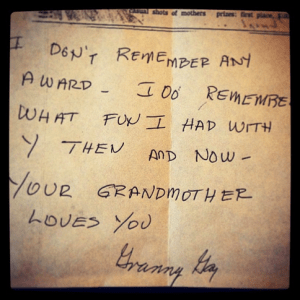 casual shots of mothers prizes: first place,
I DON'T REMEMBER ANY
AWARD - I DO REMEMBE
WHAT FUN I HAD WITH
Y THEN AND NOW -
YOUR GRANDMOTHER
LOVES YOU
Granny